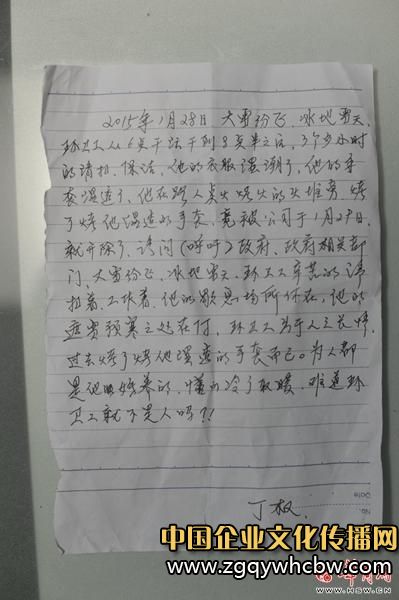 2015年1月28日 大雪纷飞,冰地雪天,
环卫工从6点干活干到8点半之后,3个多小时
的清扫、保洁,他的衣服湿潮了,他的手
套湿透了,他在路人点火烧火的火堆旁,烤
了烤他湿透的手套,竟被公司于1月29日
就开除了,请问(呼吁)政府、政府相关部
门,大雪纷飞,冰地雪天,环卫工辛苦的清
扫着,工作着,他的歇息场所何在,他的
避寒预寒之处在何,环卫工为于人之长情,
过去烤了烤他湿透的手套而已。为人都
是他妈养的,懂的冷了取暖,难道环
卫工就不是人吗?!
丁权.
No.
Date
中国企业文化传播网
www.zgqywhcbw.com
华商网
WWW.HSW.CN